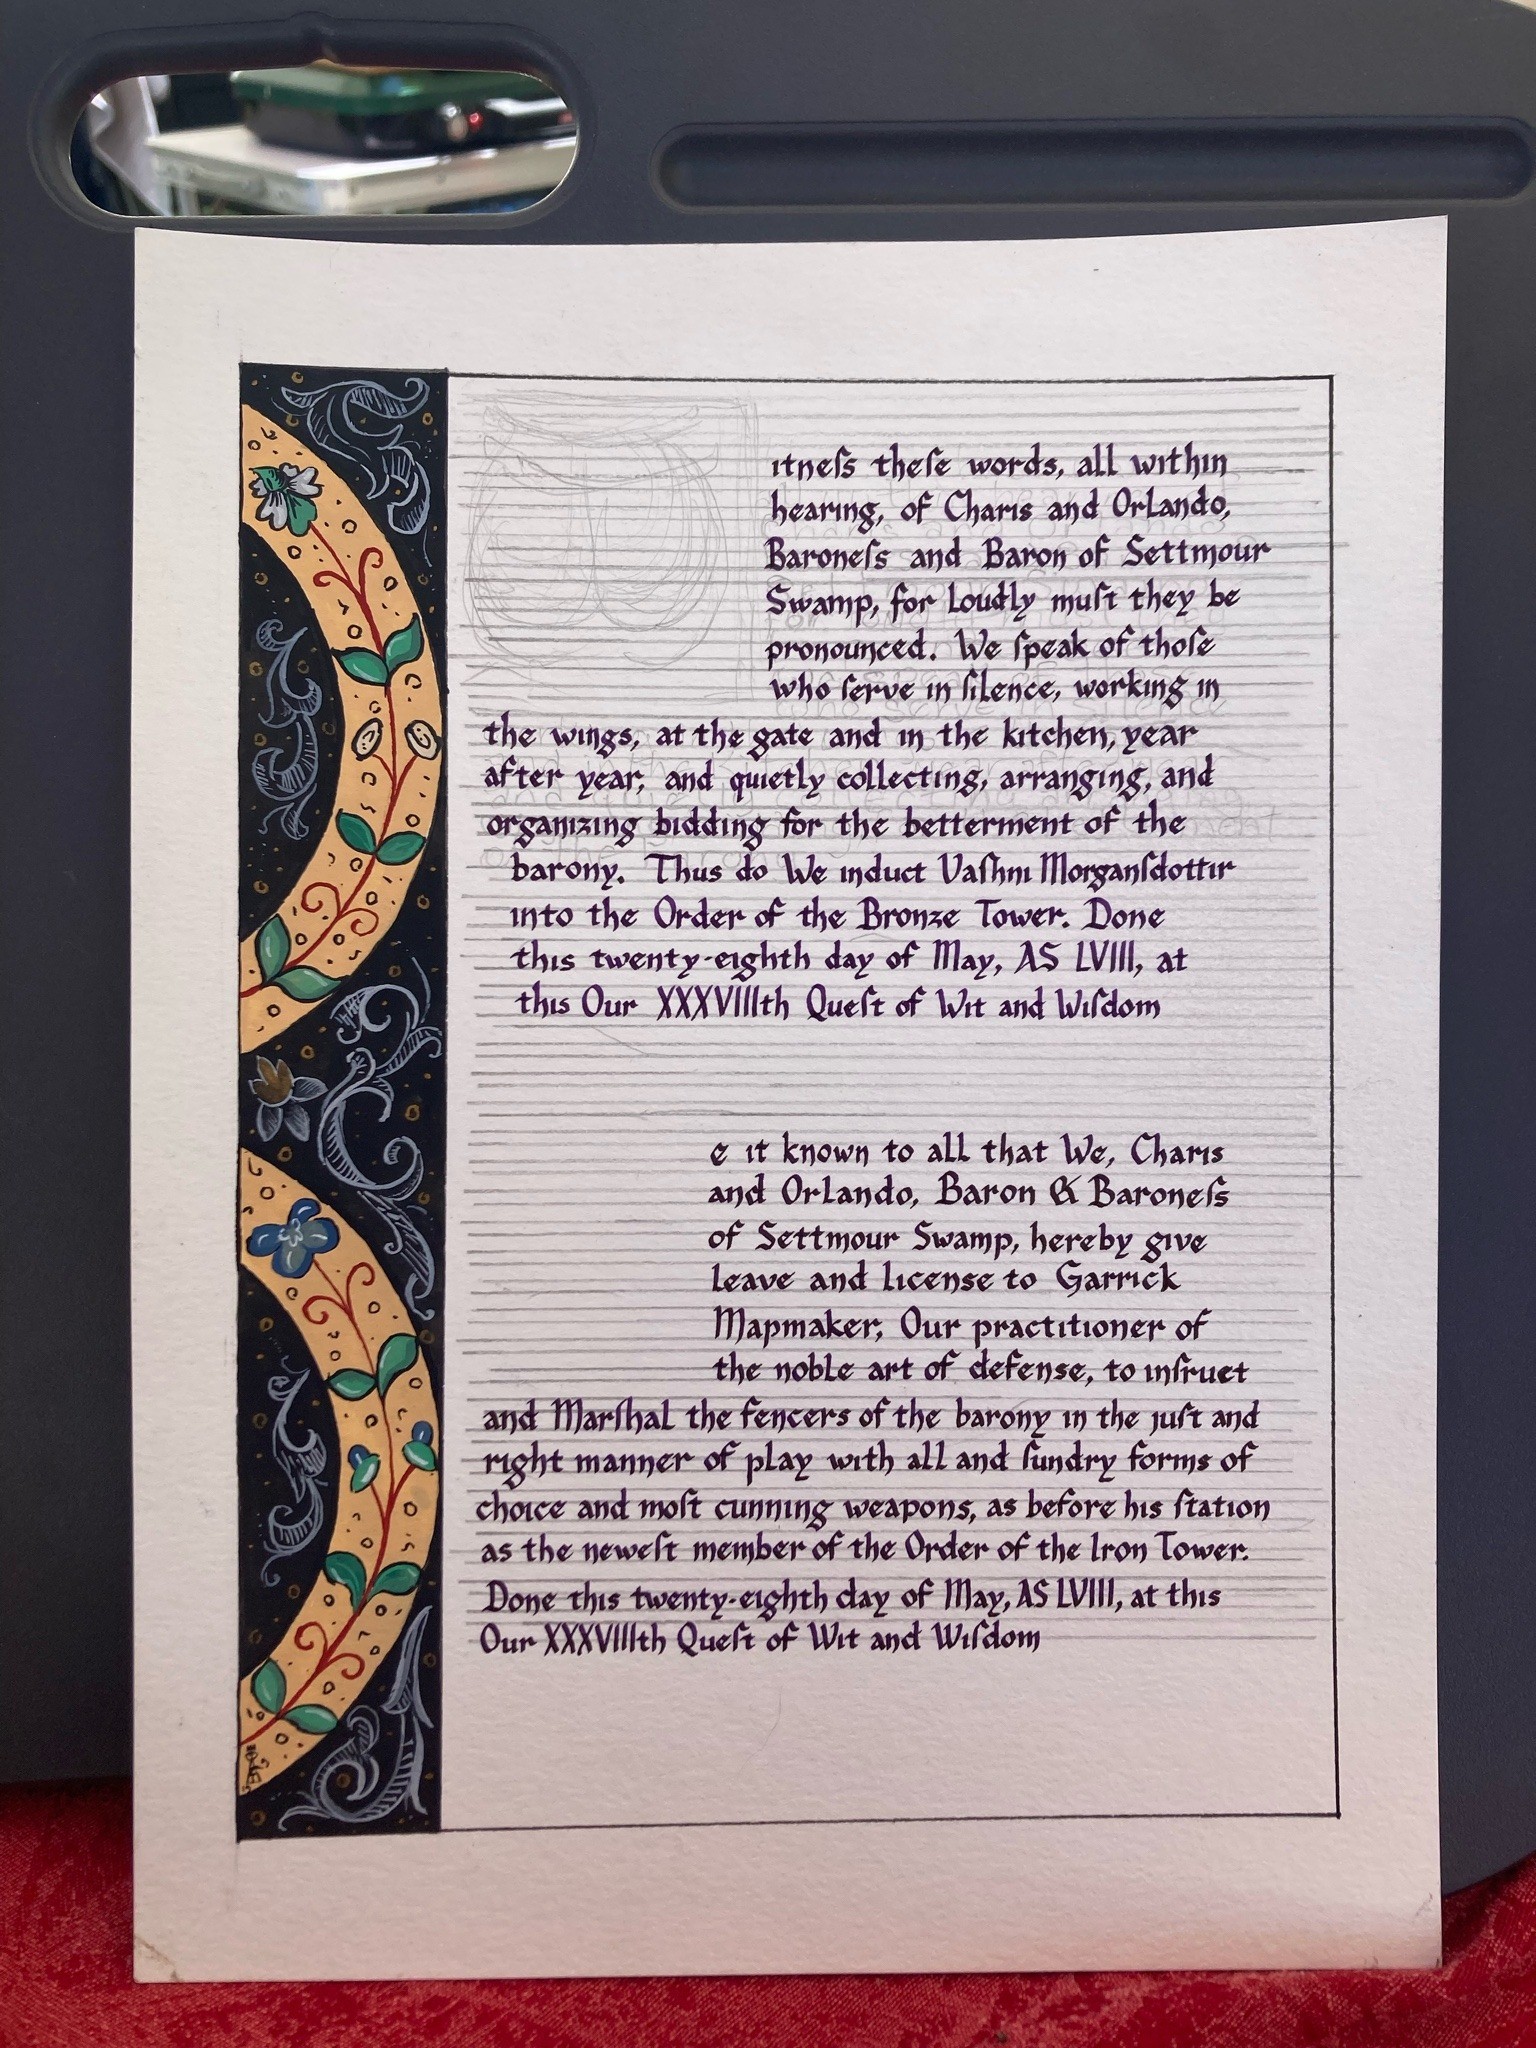 itneſs theſe words, all within
hearing, of Charis and Orlando,
Baroneſs and Baron of Settmour
Swamp, for loudly muſt they be
pronounced. We ſpeak of thoſe
who ſerve in ſilence, working in
the wings, at the gate and in the kitchen, year
after year, and quietly collecting, arranging, and
organizing bidding for the betterment of the
barony. Thus do We induct Vaſhni Morganſdottir
into the Order of the Bronze Tower. Done
this twenty-eighth day of May, AS LVIII, at
this Our XXXVIIIth Queſt of Wit and Wiſdom
e it known to all that We, Charis
and Orlando, Baron & Baroneſs
of Settmour Swamp, hereby give
leave and license to Garrick
Mapmaker, Our practitioner of
the noble art of defense, to inſruct
and Marſhal the fencers of the barony in the juſt and
right manner of play with all and ſundry forms of
choice and moſt cunning weapons, as before his ſtation
as the neweſt member of the Order of the Iron Tower.
Done this twenty-eighth day of May, AS LVIII, at this
Our XXXVIIIth Queſt of Wit and Wiſdom